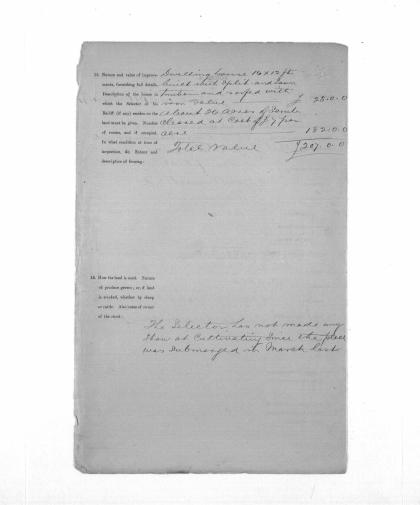 13. Nature and value of improve-
ments, furnishing full details.
Description of the house in
which the Selector or his
Bailiff (if any) resides on the
land must be given. Number
of rooms, and if occupied.
In what condition at time of
inspection, &c. Extent and
description of fencing:
Dwelling house 16 x 12 ft
built with split and sawn
timber and roofed with
iron Value £ 25.0.0
About 26 acres of land
cleared at Cost of £7 per
acre 182.0.0
Total Value £207.0.0
14. How the land is used. Nature
of produce grown; or, if land
is stocked, whether by sheep
or cattle. Also name of owner
of the stock:
The Selector has not made any
Show at Cultivating Since the place
was Submerged in March last